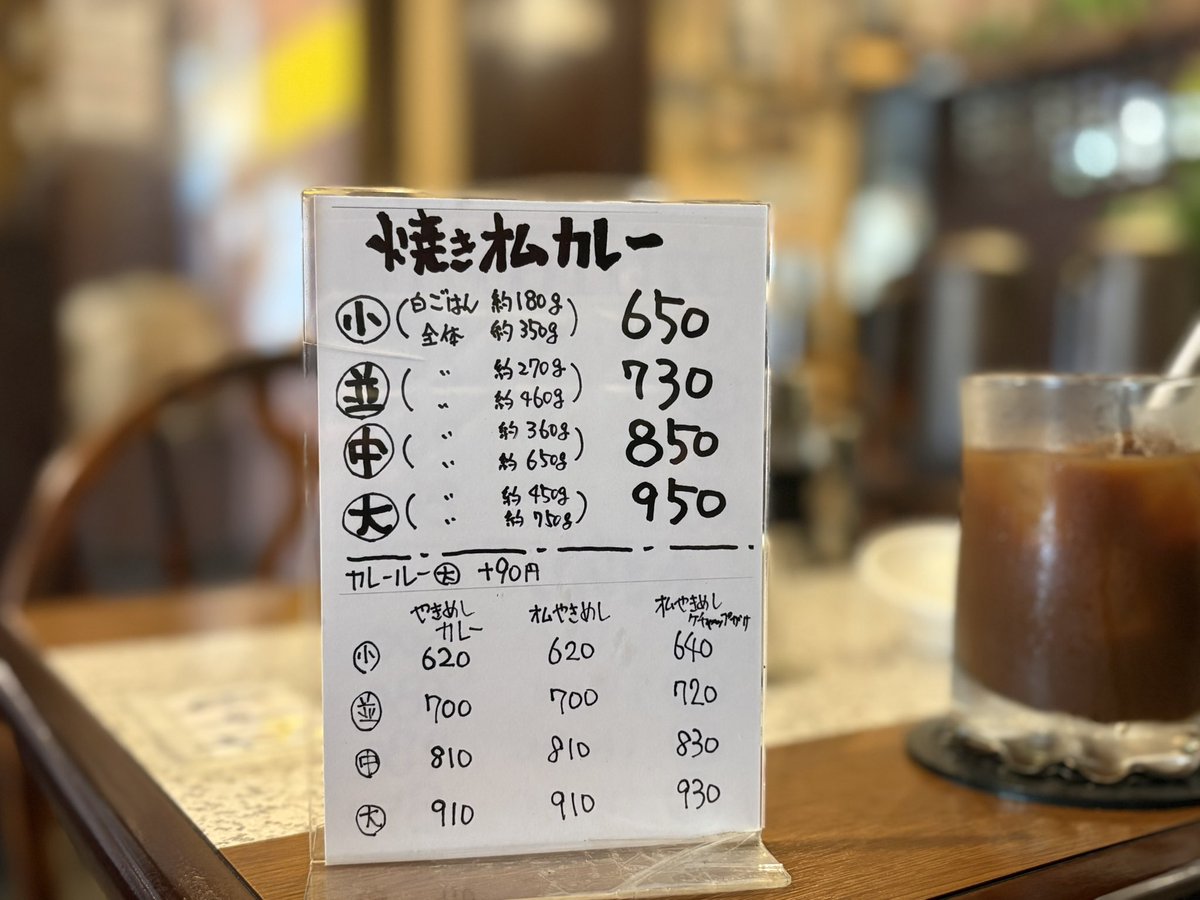 焼きオムカレー
小 (白ごはん 約180g 全体 約350g) 650
並 ( 〃 約270g 〃 約460g) 730
中 ( 〃 約360g 〃 約650g) 850
大 ( 〃 約450g 〃 約750g) 950
カレールー大 +90円
やきめしカレー オムやきめし オムやきめしケチャップがけ
小 620 620 640
並 700 700 720
中 810 810 830
大 910 910 930